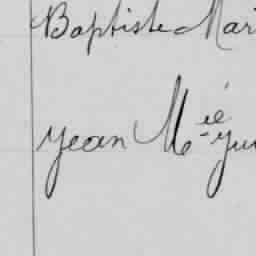 Baptiste Mari
Jean Mie